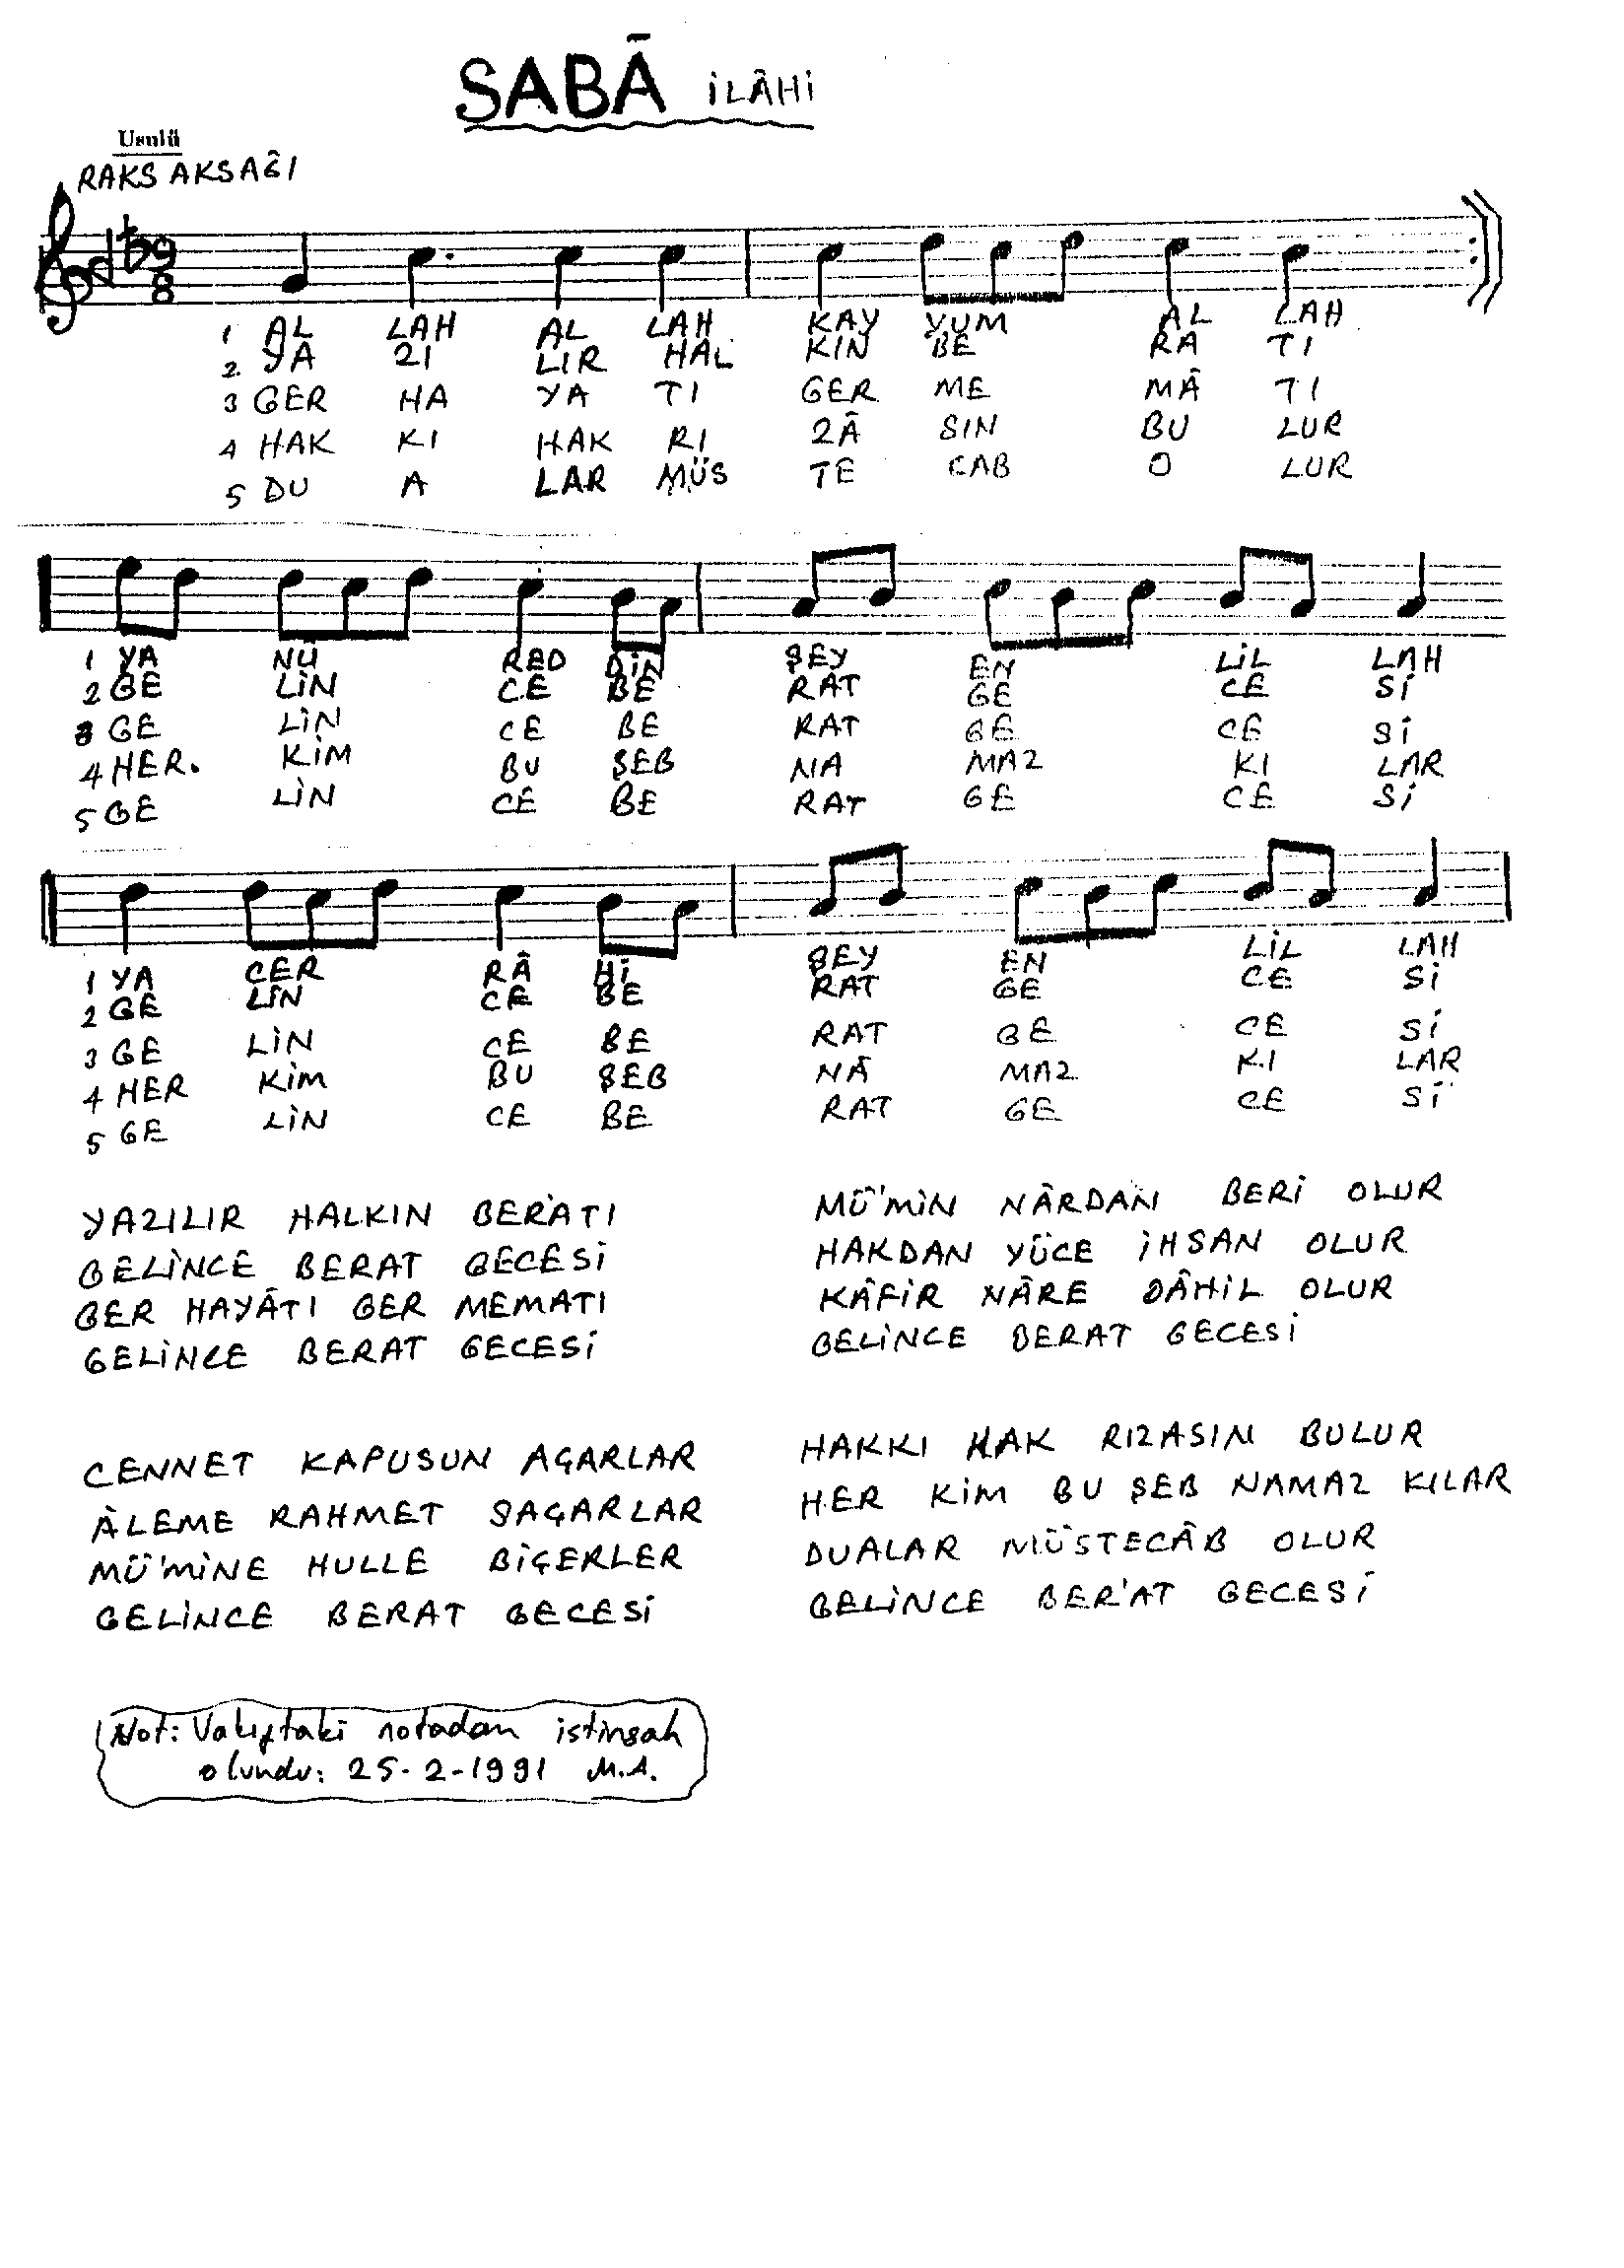 SABĀ İLÂHİ
Usulü
RAKS AKSAĞI
9
8
1 AL LAH AL LAH KAY YUM AL LAH
2 YA ZI LIR HAL KIN BE RA TI
3 GER HA YA TI GER ME MÂ TI
4 HAK KI HAK RI ZÂ SIN BU LUR
5 DU A LAR MÜS TE CAB O LUR
1 YA NU RED DİN ŞEY EN LİL LAH
2 GE LİN CE BE RAT GE CE Sİ
3 GE LİN CE BE RAT GE CE Sİ
4 HER. KİM BU ŞEB NA MAZ KI LAR
5 GE LİN CE BE RAT GE CE Sİ
1 YA CER RÂ Hİ ŞEY EN LİL LAH
2 GE LİN CE BE RAT GE CE Sİ
3 GE LİN CE BE RAT GE CE Sİ
4 HER KİM BU ŞEB NÂ MAZ KI LAR
5 GE LİN CE BE RAT GE CE Sİ
YAZILIR HALKIN BER'ATI
GELİNCE BERAT GECESİ
GER HAYÂTI GER MEMATI
GELİNCE BERAT GECESİ
CENNET KAPUSUN AÇARLAR
ÀLEME RAHMET SAÇARLAR
MÜ'MİNE HULLE BİÇERLER
GELİNCE BERAT GECESİ
MÜ'MİN NÂRDAN BERİ OLUR
HAKDAN YÜCE İHSAN OLUR
KÂFİR NÂRE DÂHİL OLUR
GELİNCE BERAT GECESİ
HAKKI HAK RIZASIN BULUR
HER KİM BU ŞEB NAMAZ KILAR
DUALAR MÜSTECÂB OLUR
GELİNCE BER'AT GECESİ
Not: Vakıftaki notadan istinsah
olundu: 25-2-1991 M.A.